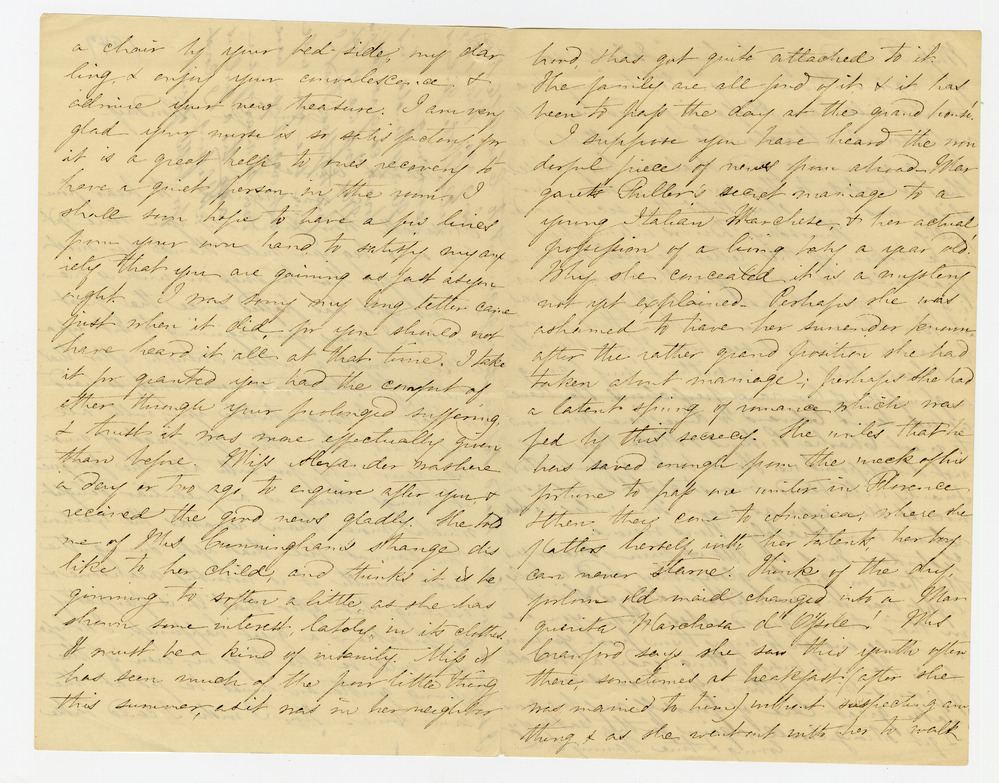 a chair by your bed-side, my dar
ling, & enjoy your convalescence, &
admire your new treasure. I am very
glad your nurse is so satisfactory, for
it is a great help to one's recovery to
have a quiet person in the room. I
shall soon hope to have a few lines
from your own hand to satisfy my anx
iety that you are gaining as fast as you
might. I was sorry my long letter came
just when it did, for you should not
have heard it all at that time. I take
it for granted you had the comfort of
ether through your prolonged suffering,
& trust it was more effectually given
than before. Miss Alexander was here
a day or two ago to enquire after you &
received the good news gladly. She told
me of Mrs Cunningham's strange dis
like to her child, and thinks it is be
ginning to soften a little, as she has
shown some interest, lately, in its clothes.
It must be a kind of insanity. Miss A
has seen much of the poor little thing
this summer, as it was in her neighbor
hood, & has got quite attached to it.
The family are all fond of it & it has
been to pass the day at the grand house!
I suppose you have heard the won
derful piece of news from abroad - Mar
garet Fuller's secret marriage to a
young Italian Marchese, & her actual
possession of a living baby a year old!
Why she concealed it is a mystery
not yet explained - Perhaps she was
ashamed to have her surrender known
after the rather grand position she had
taken about marriage; perhaps she had
a latent spring of romance which was
fed by this secrecy. She writes that he
has saved enough from the wreck of his
fortune to pass one winter in Florence
& then they come to America, where she
flatters herself, with her talents her boy
can never starve. Think of the dry,
forlorn old maid changed into a Mar
guerita Marchesa d'Ossole! Mrs
Crawford says she saw this youth often
there, sometimes at breakfast (after she
was married to him) without suspecting any
thing, & as she went out with her to walk